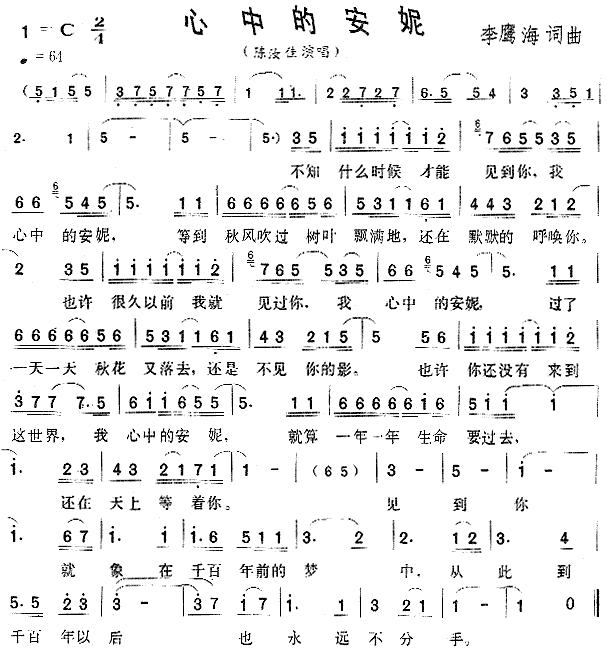 心中的安妮
1=C 2/4
李鹰海 词曲
♩=64
（陈汝佳演唱）
(5155 | 3757757 | 1 11. | 22727 | 6.5 54 | 3 351 |
2. 1 | 5 - | 5 - | 5.) 35 | 1111112 | 7655535 |
不知 什么时候 才能 见到你，我
66 6545 | 5. 11 | 66666656 | 531161 | 443 212 |
心中 的安妮， 等到 秋风吹过 树叶 飘满地，还在 默默的 呼唤你。
2 35 | 11111112 | 6765 535 | 66 6545 | 5. 11 |
也许 很久以前 我就 见过你. 我 心中 的安妮， 过了
66666656 | 531161 | 43 215 | 5 56 | 11111112 |
一天一天 秋花 又落去，还是 不见 你的影。 也许 你还没有 来到
377 7.5 | 611655 | 5. 11 | 66666661 | 511 1 |
这世界， 我 心中的安 妮， 就算 一年一年 生命 要过去，
1. 23 | 43 2171 | 1 - | (65) | 3 - | 5 - | 1 - |
还在 天上 等 着你。 见 到 你
1. 67 | 1. 1 | 1.6 511 | 3. 2 | 2. 12 | 3. 4 |
就 象 在 千百 年前的 梦 中. 从 此 到
5.5 23 | 3 - | 37 | 17 | 1. 1 | 3 21 | 1 - | 1 0 ‖
千百 年以 后 也 永 远 不 分 手。